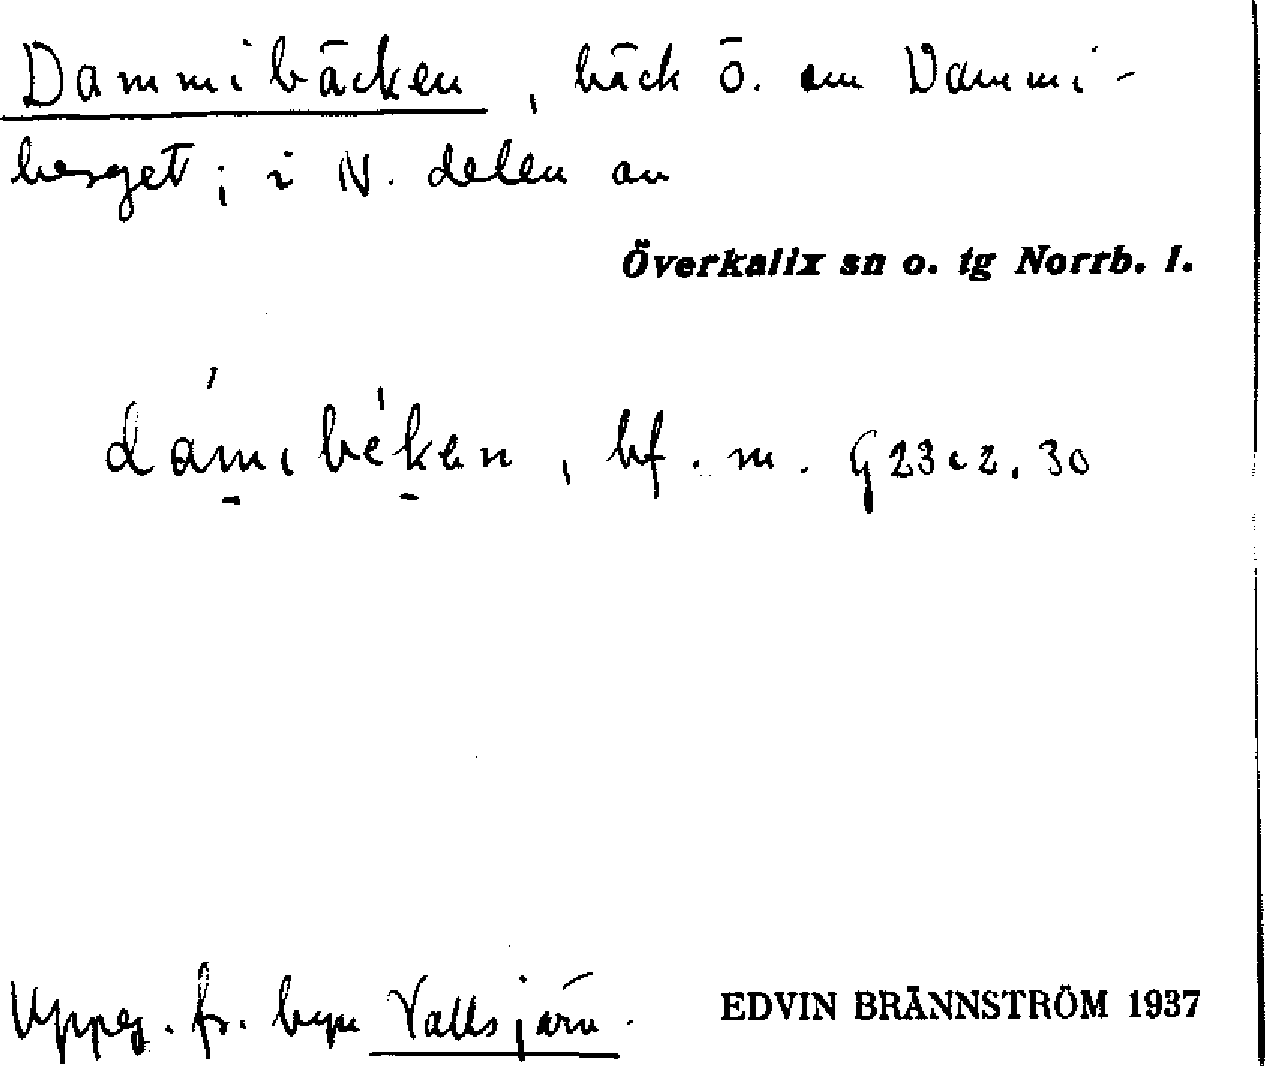 Dammibäcken, bäck ö. om Dammi-
berget; i N. delen av
Överkalix sn o. tg Norrb. l.
bf. m.
Uppg. fr. byn Vallsjärv.
EDVIN BRÄNNSTRÖM 1937